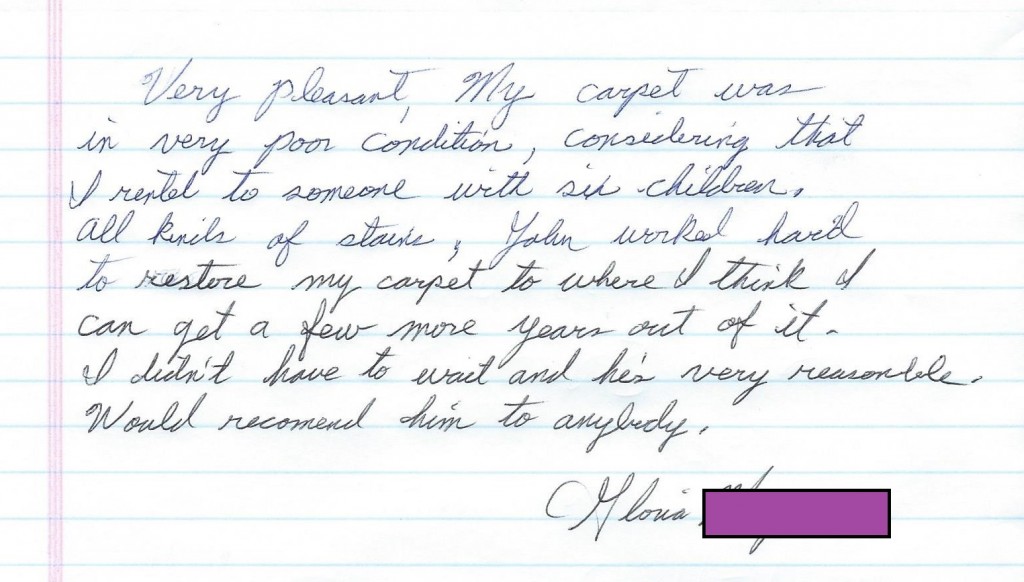 Very pleasant, My carpet was
in very poor condition, considering that
I rented to someone with six children.
All kinds of stains, John worked hard
to restore my carpet to where I think I
can get a few more years out of it.
I didn't have to wait and he's very reasonble.
Would recomend him to anybody.
Gloria